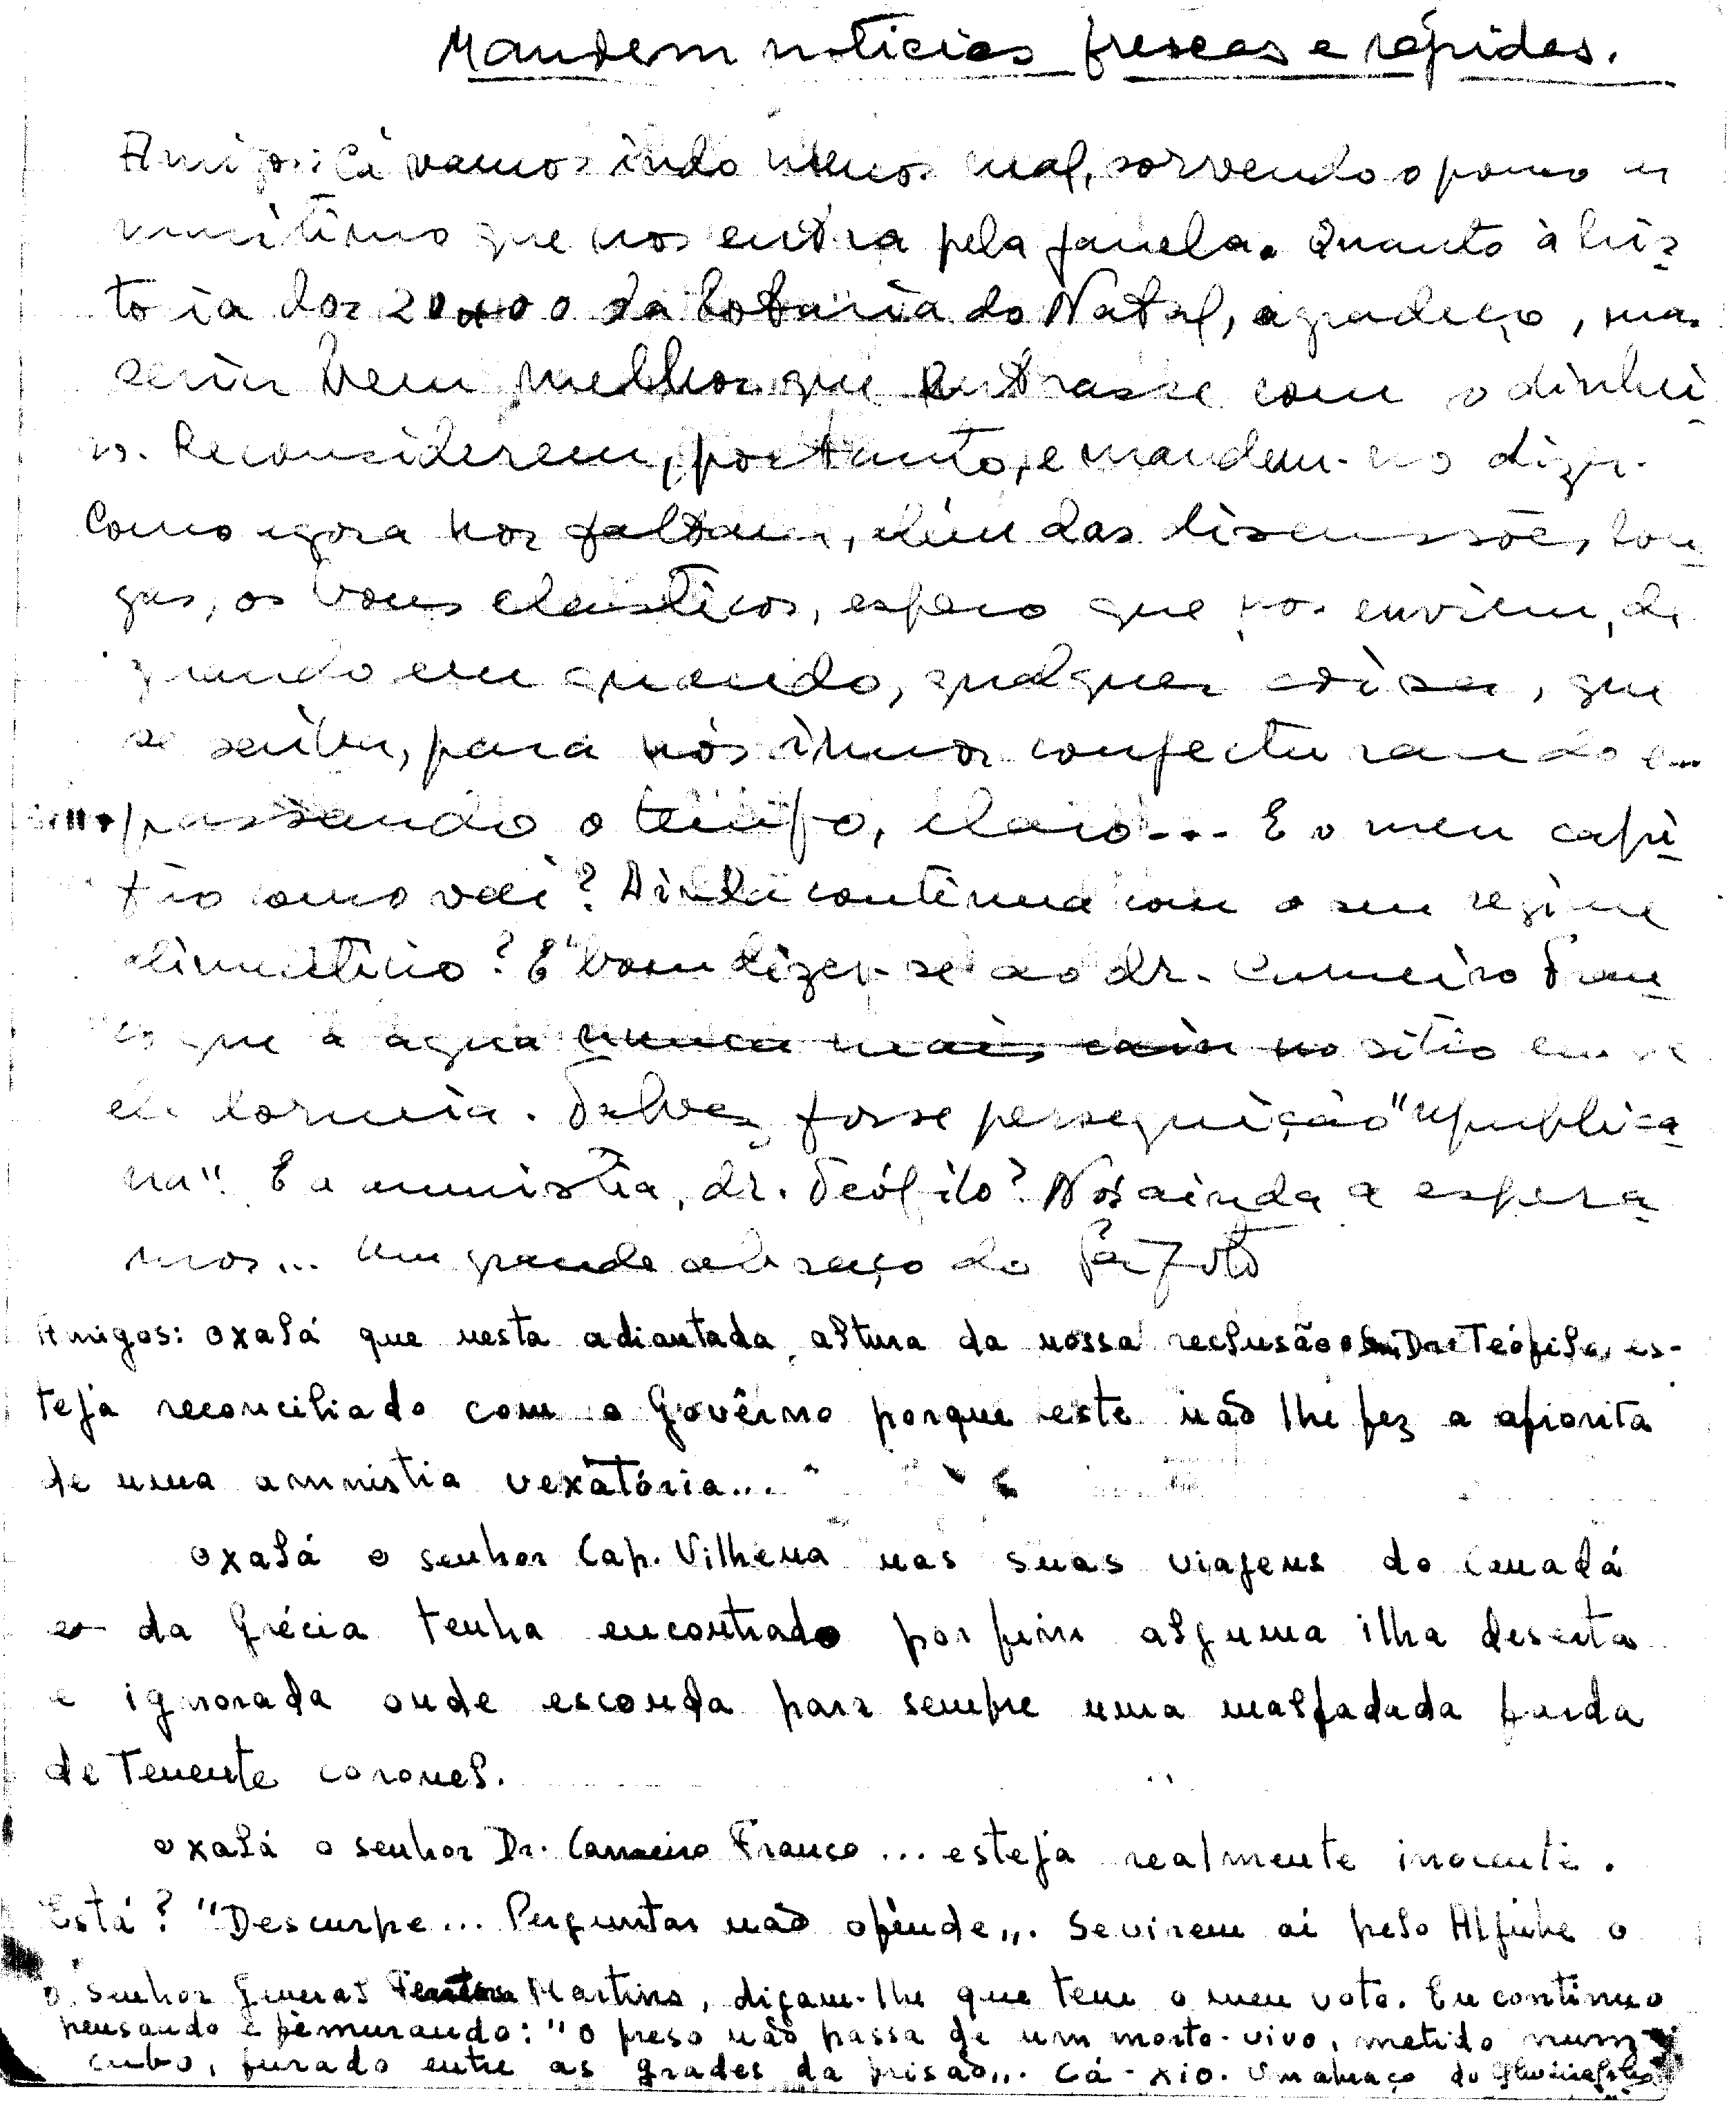 Mandem noticias frescas e rápidas.
Amigos: Cá vamos indo menos mal, sorvendo o pouco ar
maritimo que nos entra pela janela. Quanto à his-
toria dos 20$00 da lotaria do Natal, agradeço, mas
seria bem melhor que entrasse com o dinhei-
ro. Reconsiderem, portanto, e mandem-no dizer.
Como agora nos faltam, além das discussões lon-
gas, os bons elasticos, espero que nos enviem, de
quando em quando, qualquer coisa, que
se saiba, para nós irmos conjecturando e...
passando o tempo, claro... E o meu capi-
tão como vai? Ainda continua com o seu regime
alimenticio? É bom dizer-se ao dr. Carneiro Fran-
co que a agua nunca mais caiu no sitio em que
ele dormia. Talvez fosse perseguição "republica-
na". E a amnistia, dr. Teófilo? Nós ainda a espera-
mos... Um grande abraço do
Amigos: oxalá que nesta adiantada altura da nossa reclusão o Snr. Dr. Teófilo es-
teja reconciliado com o Govêrno porque este não lhe fez a afronta
de uma amnistia vexatória...
Oxalá o senhor Cap. Vilhena nas suas viagens do Canadá
e da Grécia tenha encontrado por fim alguma ilha deserta
e ignorada onde esconda para sempre uma malfadada farda
de Tenente coronel.
Oxalá o senhor Dr. Carneiro Franco... esteja realmente inocente.
Está? "Descurpe... Perguntar não ofende". Se virem aí pelo Aljube o
o senhor General Ferreira Martins, digam-lhe que tem o meu voto. Eu continuo
pensando e murmurando: "o preso não passa de um morto-vivo, metido num
cubo, furado entre as grades da prisão". Cá-xio. Um abraço do